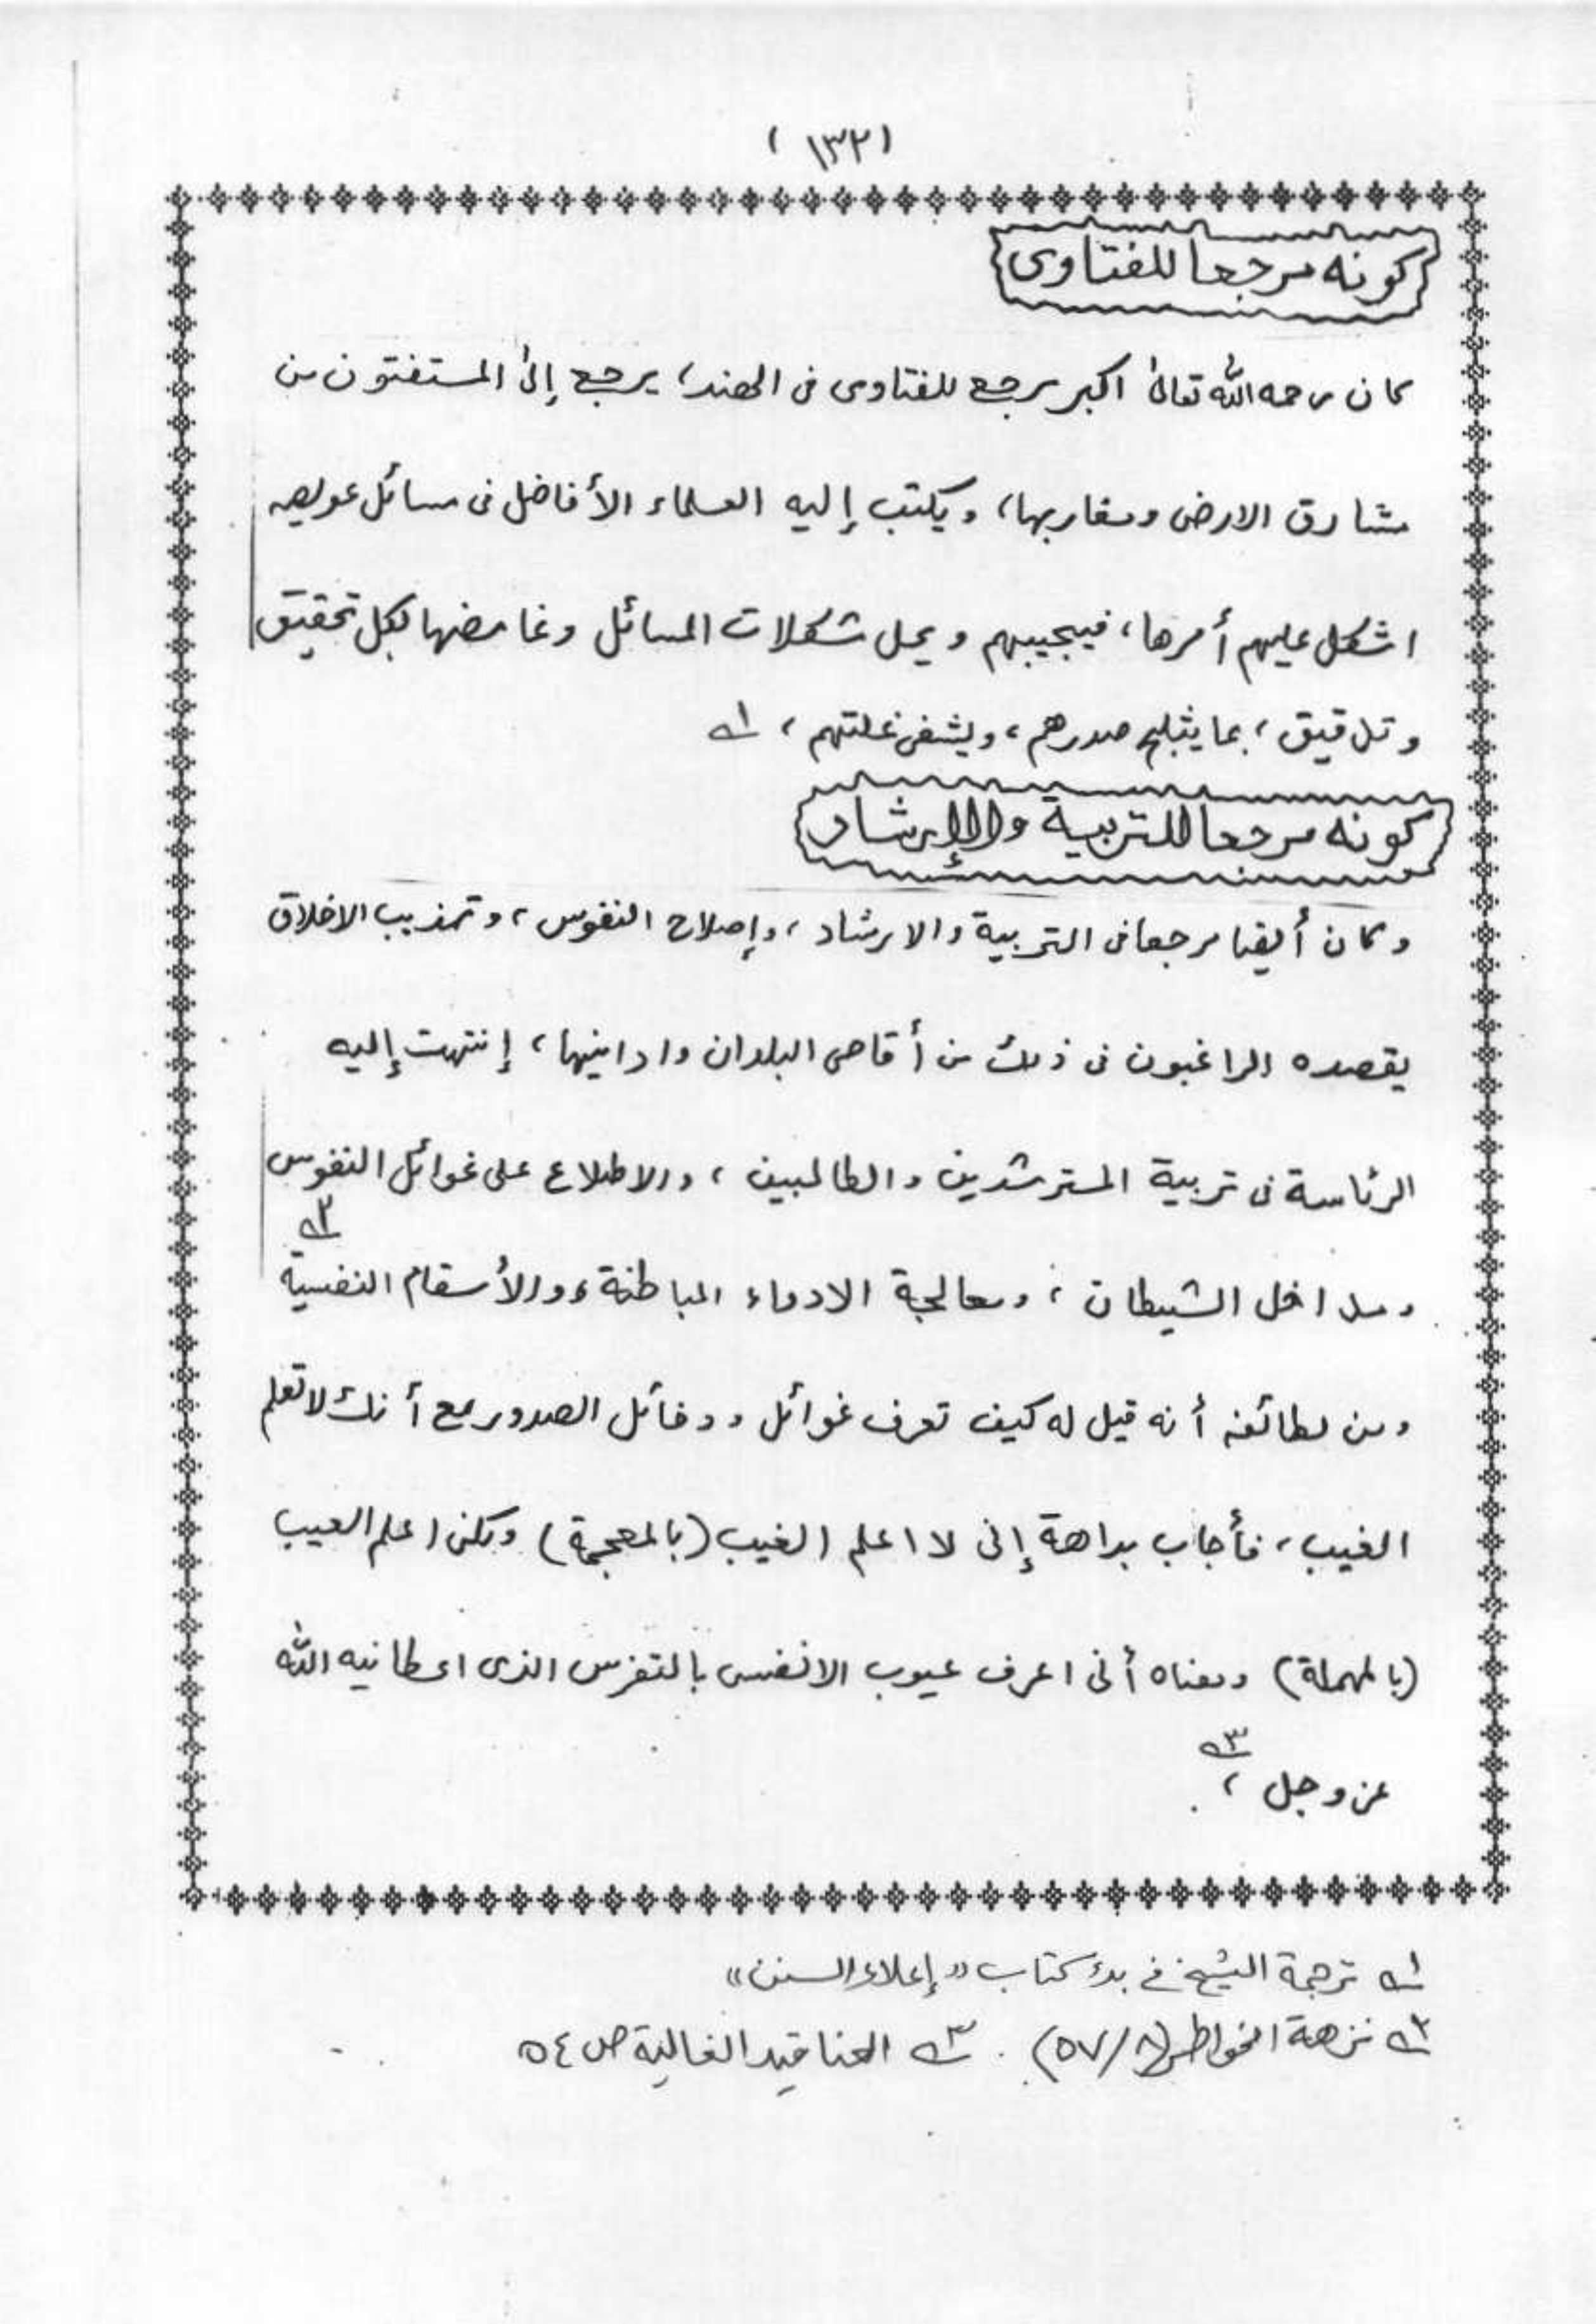 (١٣٢)
كونه مرجعا للفتاوى
كان رحمه الله تعالىٰ اكبر مرجع للفتاوى فى الهند، يرجع إلىٰ المستفتون من
مشارق الارض ومغاربها، ويكتب إليه العلماء الأفاضل فى مسائل عويصه
اشكل عليهم أمرها، فيجيبهم ويحل مشكلات المسائل وغامضها بكل تحقيق
وتدقيق، بما يثلج صدرهم، ويشفى غلتهم، ١ه
كونه مرجعا للتربية والإرشاد
وكان أيضا مرجعا فى التربية والارشاد، وإصلاح النفوس، وتهذيب الاخلاق
يقصده الراغبون فى ذلك من أقاصى البلدان وادانيها، إنتهت إليه
الرئاسة فى تربية المسترشدين والطالبين، والاطلاع على غوائل النفوس
ومداخل الشيطان، ومعالجة الادواء الباطنة، والأسقام النفسية ٢ه
ومن لطائفه أنه قيل له كيف تعرف غوائل ودفائل الصدور مع أنك لا تعلم
الغيب، فأجاب بداهة إنى لا اعلم الغيب (بالمعجمة) ولكن اعلم العيب
(بالمهملة) ومعناه أنى اعرف عيوب الانفس بالتفرس الذى اعطانيه الله
عز وجل، ٣ه
١ه ترجمة الشيخ في بدء كتاب "إعلاء السنن"
٢ه نزهة الخواطر (٨/٥٧) . ٣ه العناقيد الغالية ص ٥٤